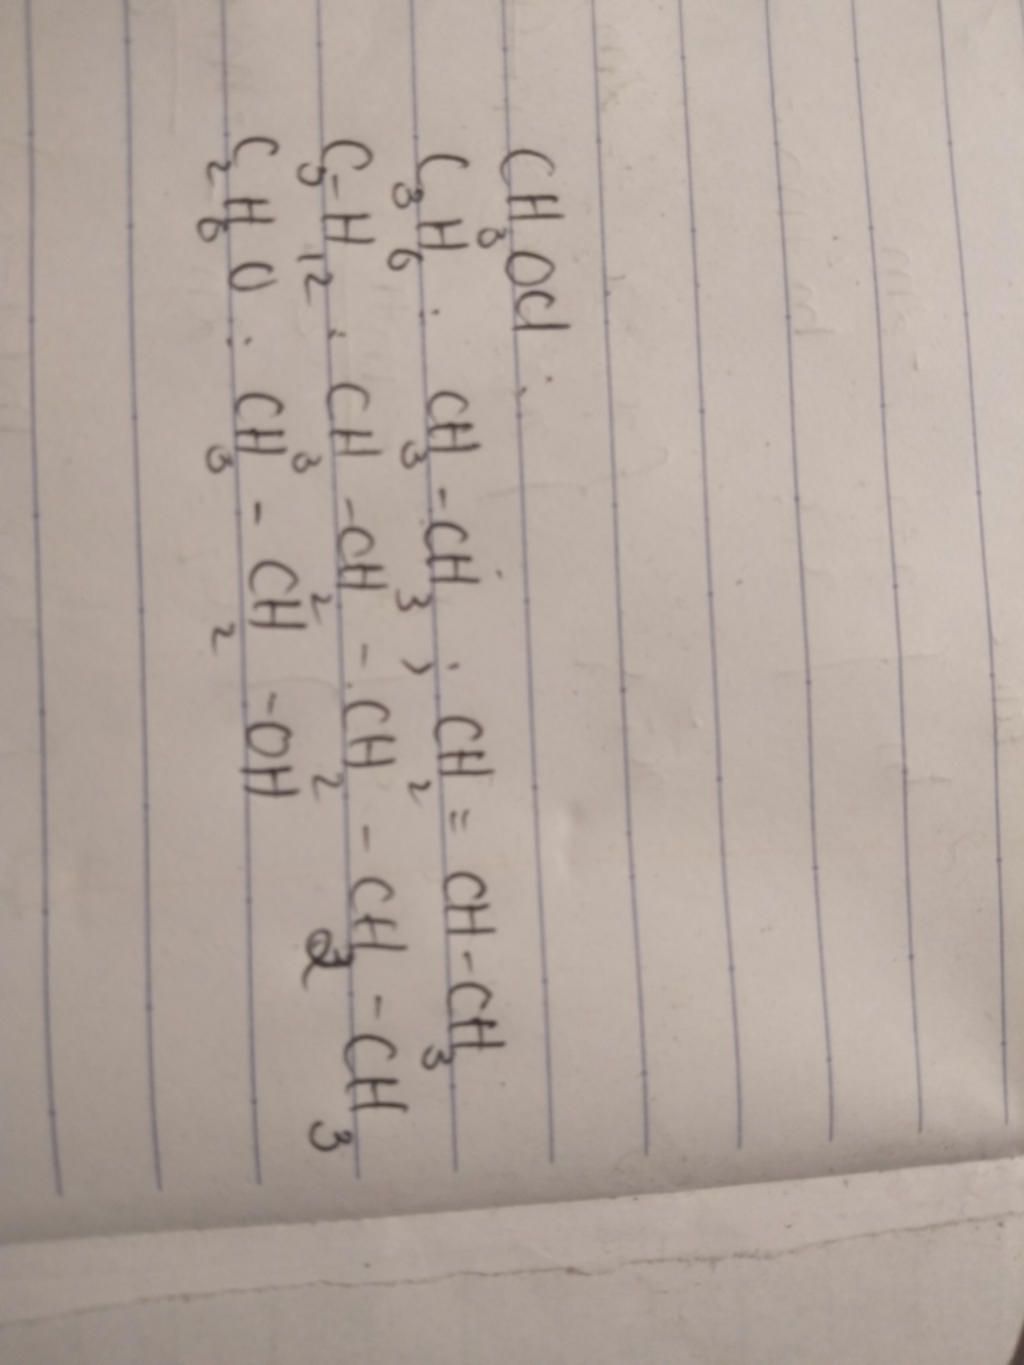 CH₃OCl :
C₃H₆ : CH₃-CH₃ ; CH₂ = CH-CH₃
C₅-H₁₂ : CH₃-CH₂-CH₂-CH₂-CH₃
C₂H₆O : CH₃-CH₂-OH